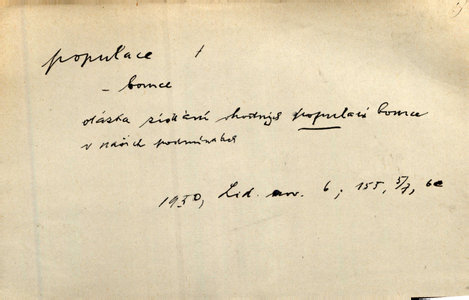 populace f
– borice
otázka získání vhodných populací borice
v našich podmínkách
1950, Lid. nov. 6; 155, 5/7, 6c